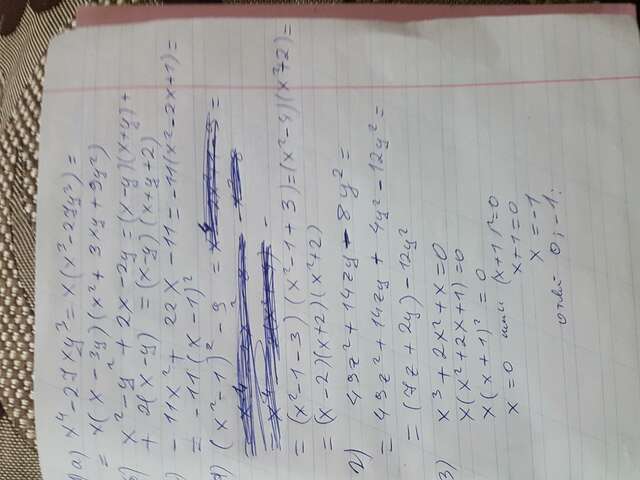 а) x⁴ - 27xy³ = x(x³ - 27y³) =
= x(x - 3y)(x² + 3xy + 9y²)
б) x² - y² + 2x - 2y = (x - y)(x + y) +
+ 2(x - y) = (x - y)(x + y + 2)
) - 11x² + 22x - 11 = - 11(x² - 2x + 1) =
= - 11(x - 1)²
(x² - 1)² - 9 =
= (x² - 1 - 3)(x² - 1 + 3) = (x² - 4)(x² + 2) =
= (x - 2)(x + 2)(x² + 2)
2) 49z² + 14zy - 8y² =
= 49z² + 14zy + 4y² - 12y² =
= (7z + 2y) - 12y²
3) x³ + 2x² + x = 0
x(x² + 2x + 1) = 0
x(x + 1)² = 0
x = 0 или (x + 1)² = 0
x + 1 = 0
x = -1
ответ 0; -1.